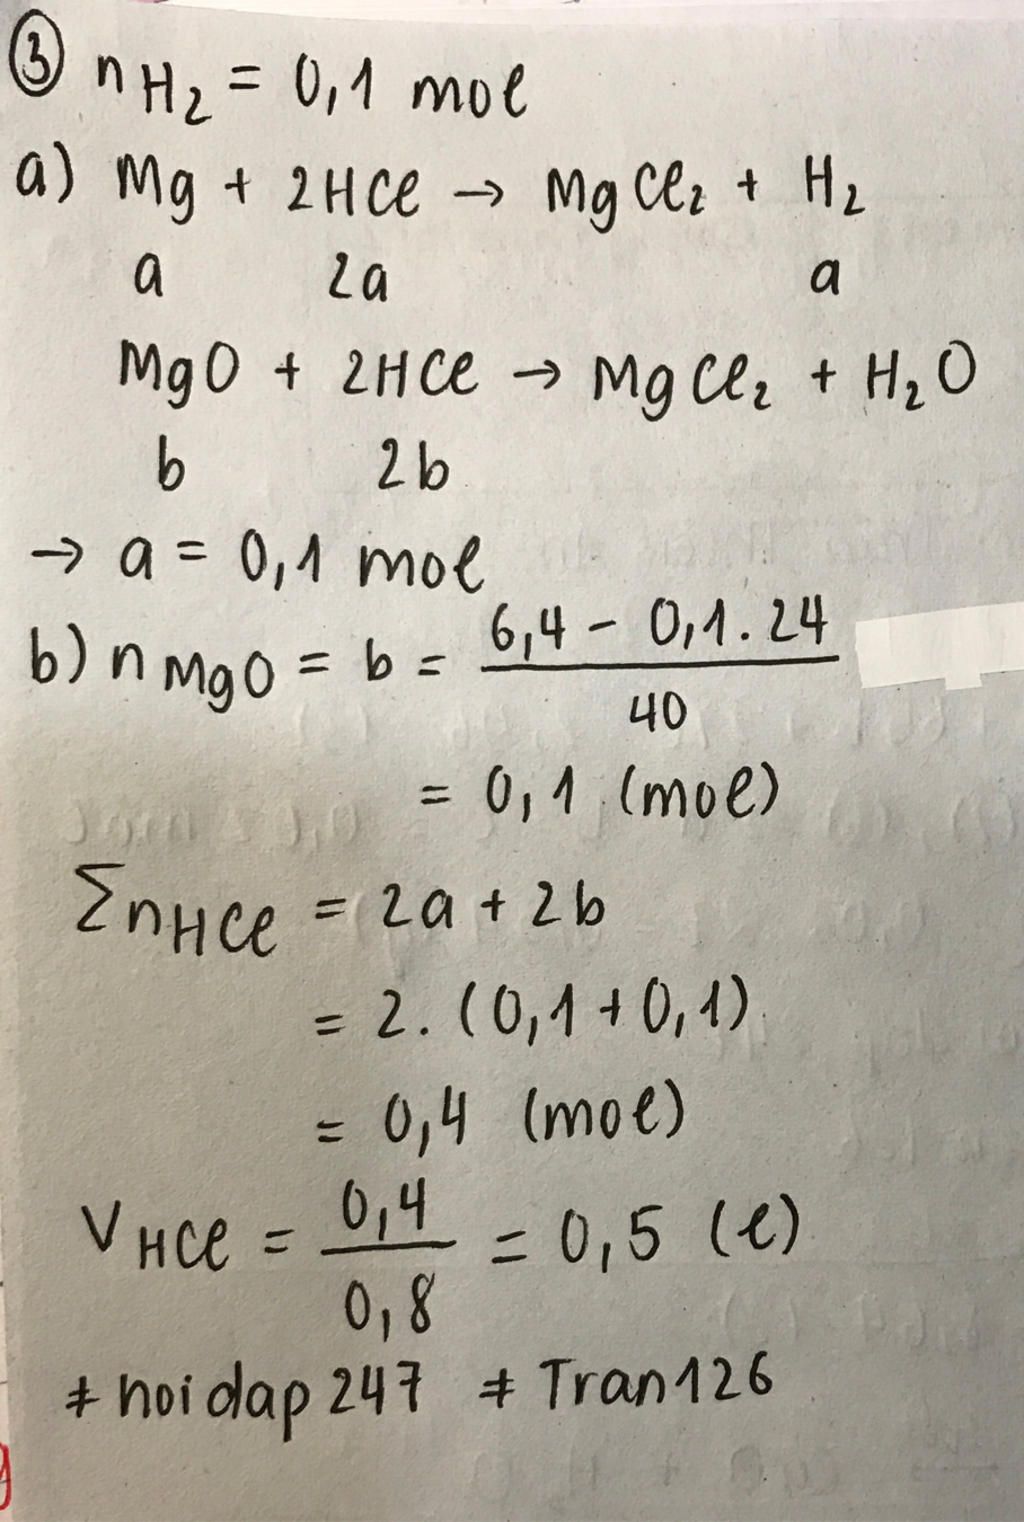 ③ nH₂ = 0,1 mol
a) Mg + 2HCl → MgCl₂ + H₂
a 2a a
MgO + 2HCl → MgCl₂ + H₂O
b 2b
→ a = 0,1 mol
b) nMgO = b = (6,4 - 0,1.24)/40
= 0,1 (mol)
ΣnHCl = 2a + 2b
= 2.(0,1 + 0,1)
= 0,4 (mol)
VHCl = 0,4/0,8 = 0,5 (l)
≠ hoidap247 ≠ Tran126